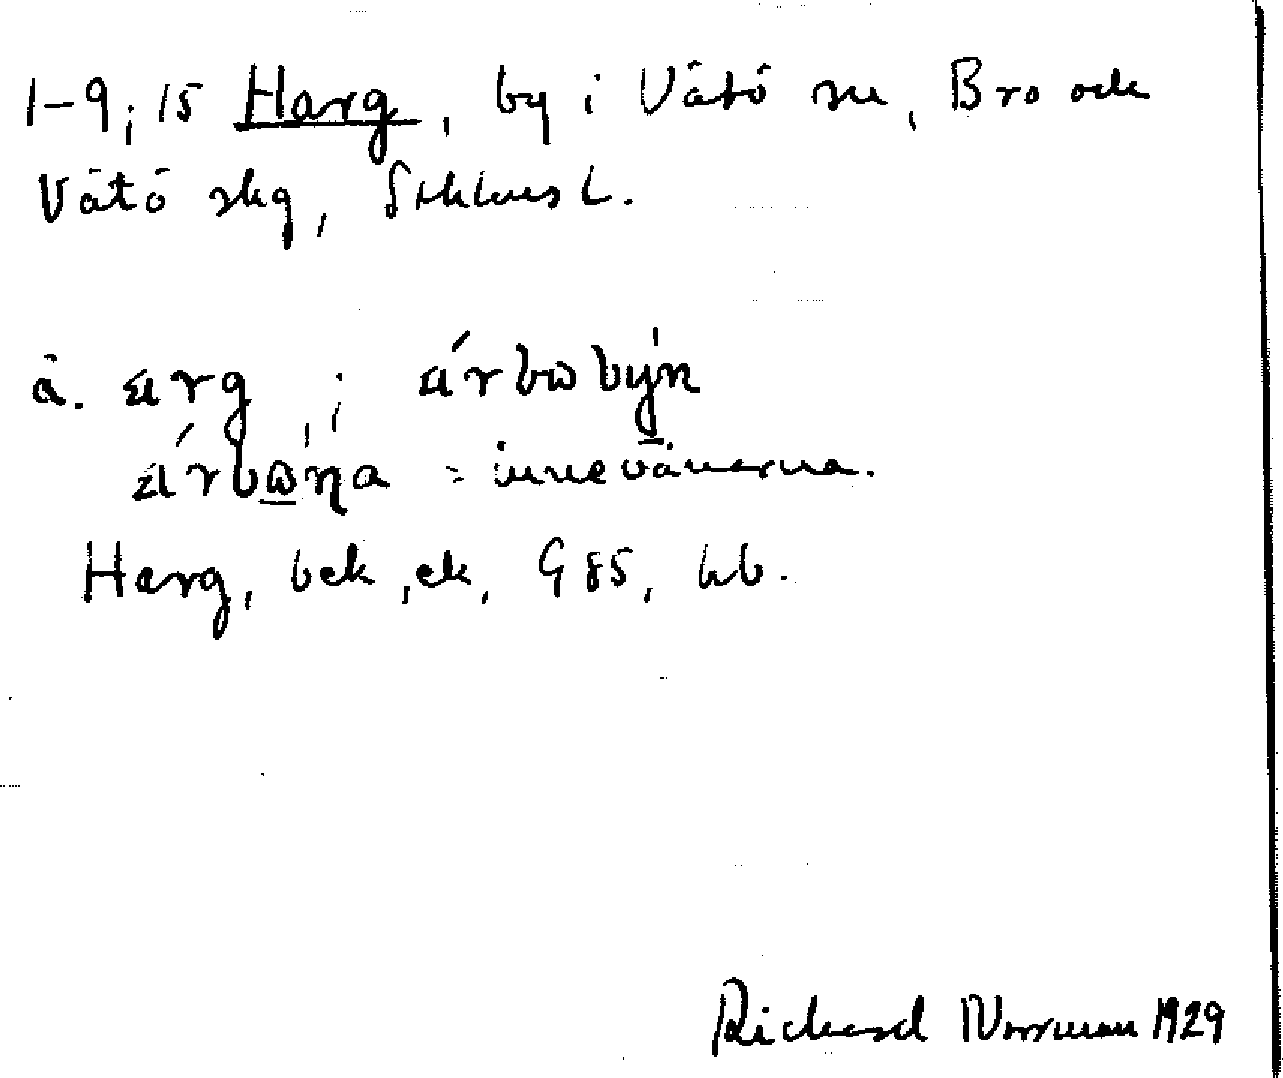 1-9; 15 Harg, by i Vätö sn, Bro och
Vätö skg, Sthlms L.
a. arg ; árbobýn
árboṇa = innevånarna.
Harg, bek, ek, G 85, hb.
Richard Norrman 1929